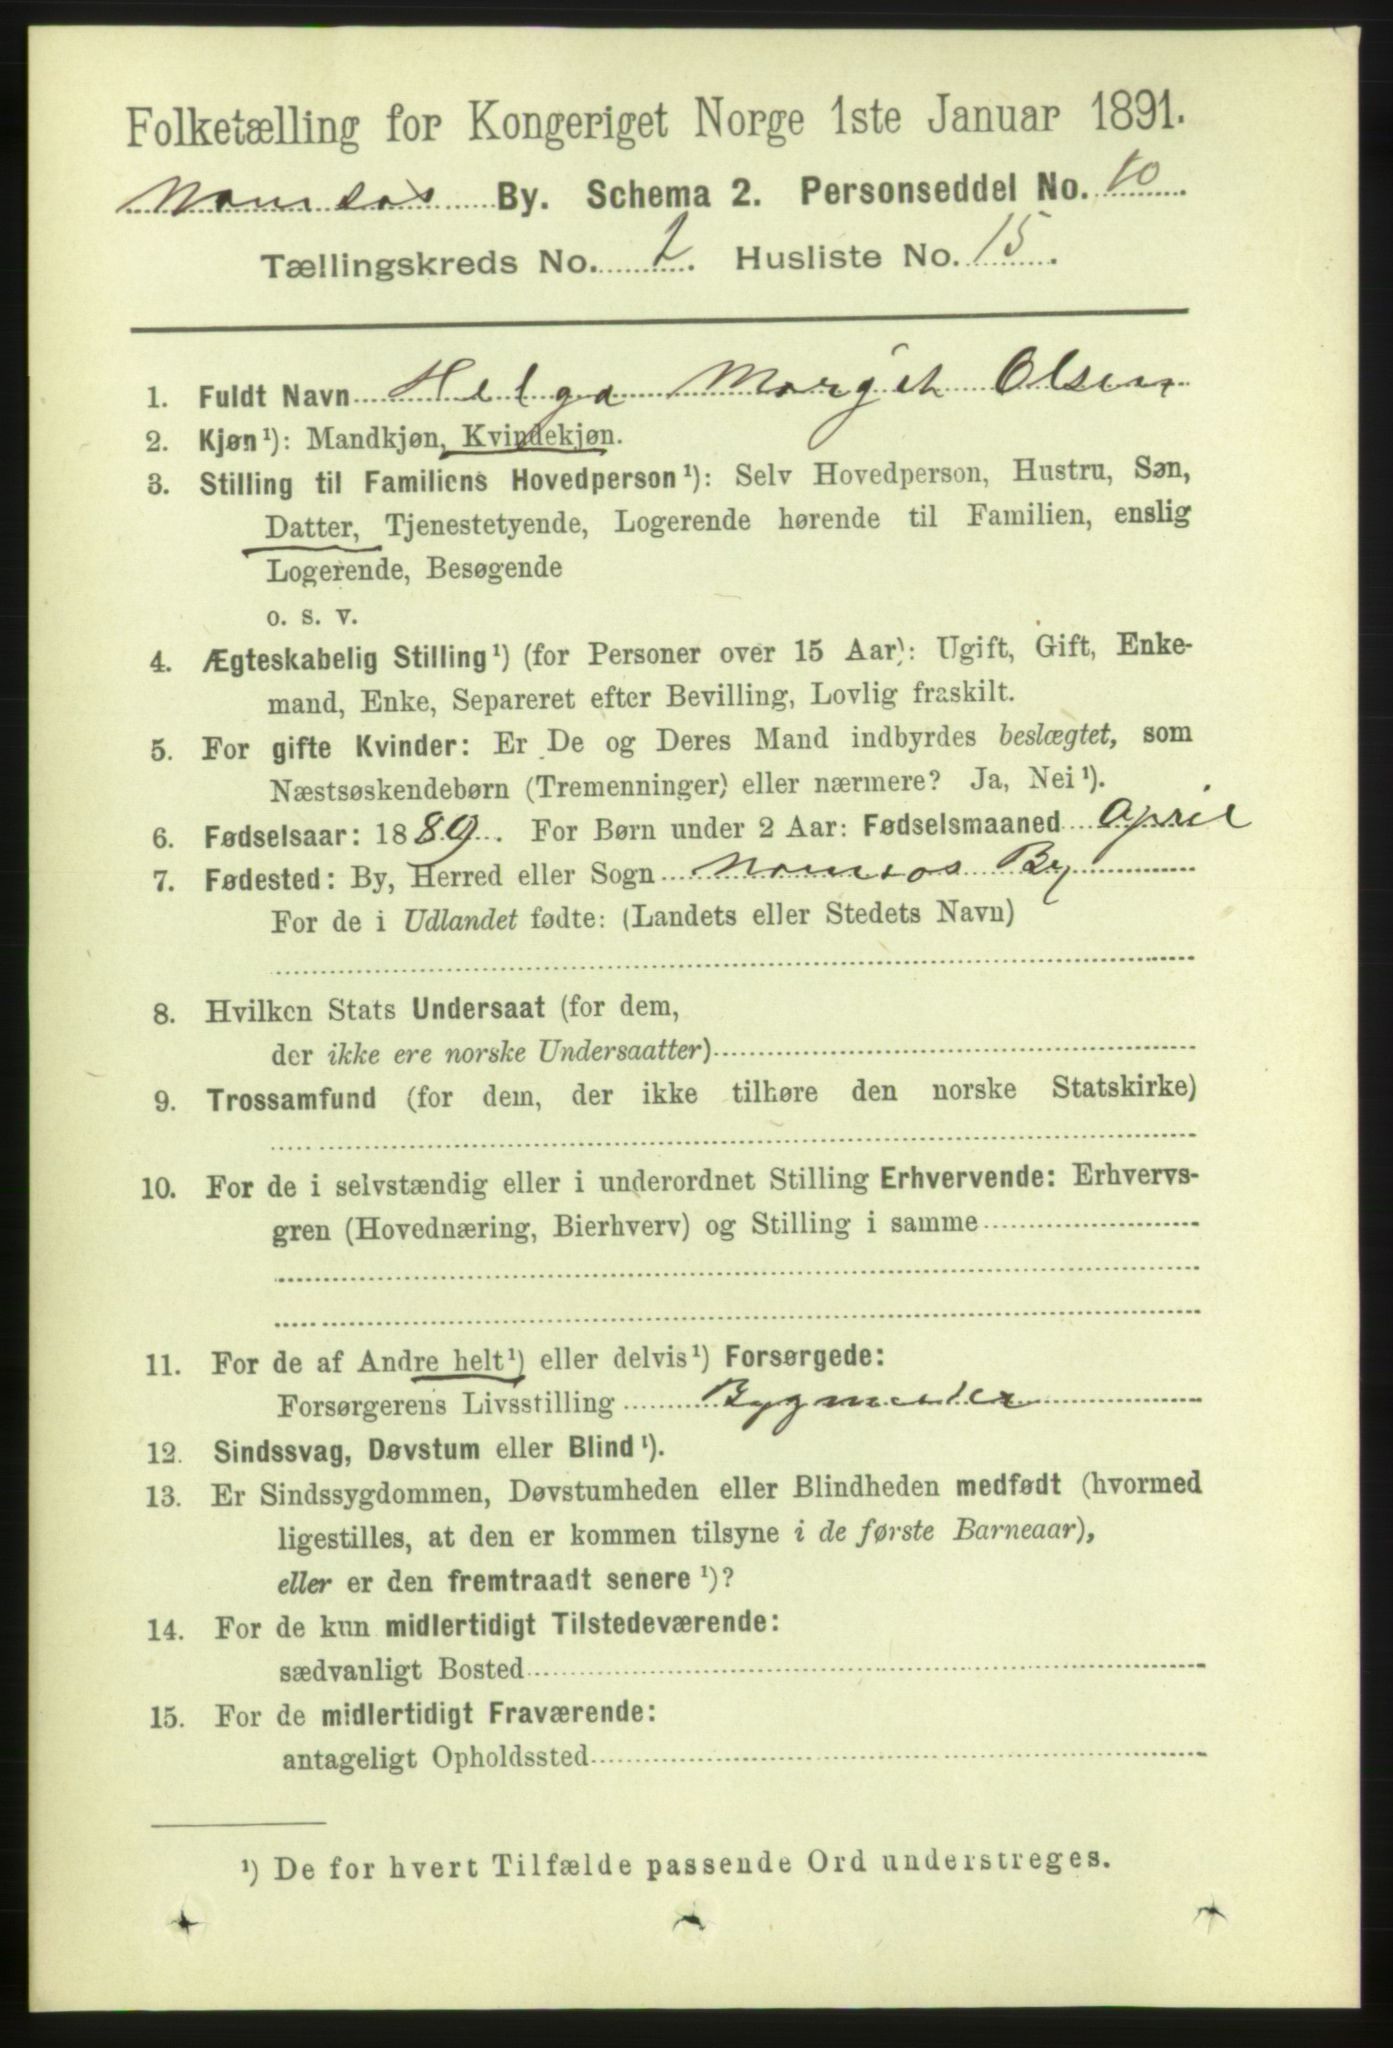 Folketælling for Kongeriget Norge 1ste Januar 1891.
Namsos By. Schema 2. Personseddel No. 10.
Tællingskreds No. 2. Husliste No. 15.
1. Fuldt Navn Helga Margit Olsen
2. Kjøn¹): Mandkjøn, Kvindekjøn.
3. Stilling til Familiens Hovedperson¹): Selv Hovedperson, Hustru, Søn,
Datter, Tjenestetyende, Logerende hørende til Familien, enslig
Logerende, Besøgende
o. s. v.
4. Ægteskabelig Stilling¹) (for Personer over 15 Aar): Ugift, Gift, Enke-
mand, Enke, Separeret efter Bevilling, Lovlig fraskilt.
5. For gifte Kvinder: Er De og Deres Mand indbyrdes beslægtet, som
Næstsøskendebørn (Tremenninger) eller nærmere? Ja, Nei¹).
6. Fødselsaar: 1889. For Børn under 2 Aar: Fødselsmaaned April
7. Fødested: By, Herred eller Sogn Namsos By
For de i Udlandet fødte: (Landets eller Stedets Navn)
8. Hvilken Stats Undersaat (for dem,
der ikke ere norske Undersaatter)
9. Trossamfund (for dem, der ikke tilhøre den norske Statskirke)
10. For de i selvstændig eller i underordnet Stilling Erhvervende: Erhvervs-
gren (Hovednæring, Bierhverv) og Stilling i samme
11. For de af Andre helt¹) eller delvis¹) Forsørgede:
Forsørgerens Livsstilling Bygmester
12. Sindssvag, Døvstum eller Blind¹).
13. Er Sindssygdommen, Døvstumheden eller Blindheden medfødt (hvormed
ligestilles, at den er kommen tilsyne i de første Barneaar),
eller er den fremtraadt senere¹)?
14. For de kun midlertidigt Tilstedeværende:
sædvanligt Bosted
15. For de midlertidigt Fraværende:
antageligt Opholdssted
¹) De for hvert Tilfælde passende Ord understreges.